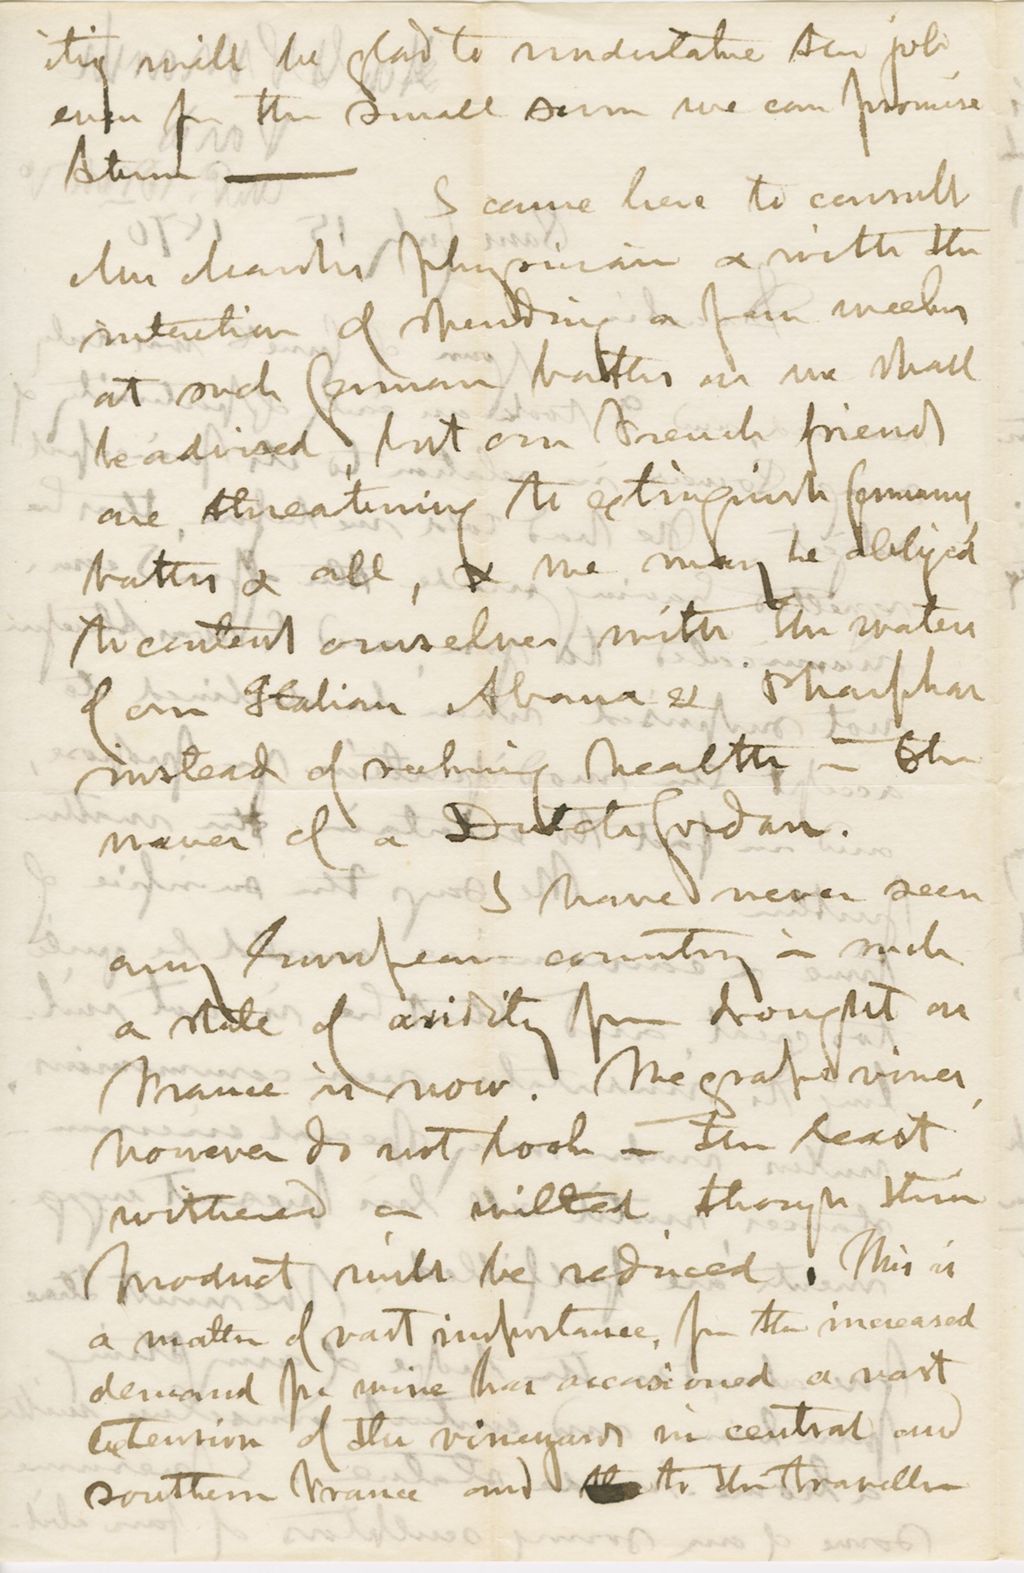 ity will be glad to undertake the job
even for the small sum we can promise
them ———
I came here to consult
Mrs Marsh's physician & with the
intention of spending a few weeks
at such German baths as we shall
be advised, but our French friends
are threatening to extinguish Germany,
baths & all, & we may be obliged
to content ourselves with the waters
of our Italian Abana &
instead of seeking health in the
waves of a Dutch Jordan.
I have never seen
any European country in such
a state of aridity from drought as
France is now. The grape vines,
however do not look in the least
withered or wilted though their
product will be reduced. This is
a matter of vast importance, for the increased
demand for wine has occasioned a vast
extension of the vineyards in central and
southern France and to the traveller